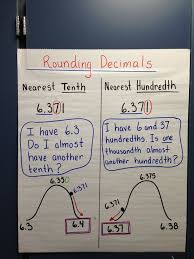 Rounding Decimals
Nearest Tenth
6.371
I have 6.3
Do I almost
have another
tenth?
6.350
6.371
6.3
6.4
Nearest Hundredth
6.371
I have 6 and 37
hundredths. Is one
thousandth almost
another hundredth?
6.375
6.371
6.37
6.38